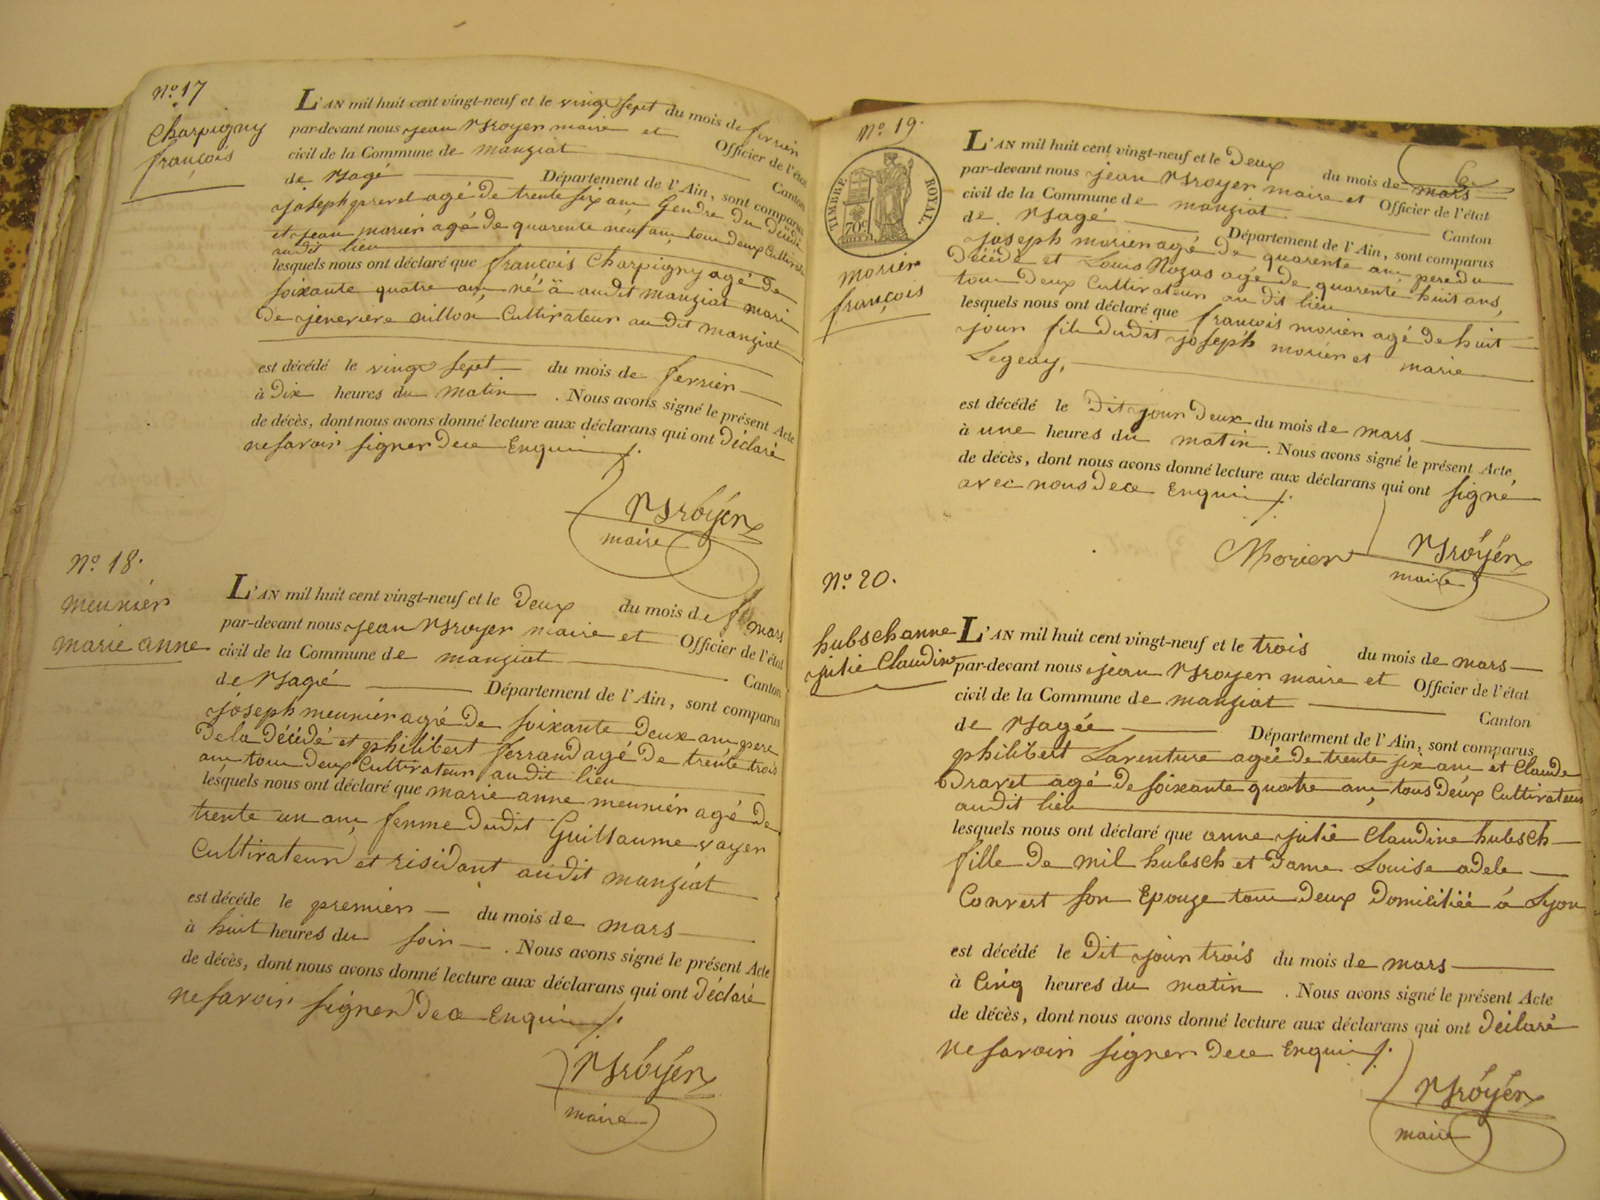 N.º 17
Charpigny
françois
L'AN mil huit cent vingt-neuf et le vingt sept du mois de fevrier
par-devant nous jean Broyer maire et Officier de l'état
civil de la Commune de manziat Canton
de Bagé Département de l'Ain, sont comparus
joseph prevel agé de trente six ans Gendre du Décédé
et jean morier agé de quarente neuf ans, tous deux Cultivat
audit lieu
lesquels nous ont déclaré que françois Charpigny agé de
soixante quatre ans né à audit manziat mari
de jenevieve nillon, Cultivateur audit manziat
est décédé le vingt sept du mois de fevrier
à Dix heures du matin . Nous avons signé le présent Acte
de décès, dont nous avons donné lecture aux déclarans qui ont Déclaré
ne savoir signer De ce Enquis ./.
Broyer
maire
N.º 18.
meunier
marie anne
L'AN mil huit cent vingt-neuf et le Deux du mois de mars
par-devant nous jean Broyer maire et Officier de l'état
civil de la Commune de manziat Canton
de Bagé Département de l'Ain, sont comparus
joseph meunier agé de soixante Deux ans pere
De la Décédé et philibert ferrand agé De trente trois
ans tous deux Cultivateurs audit lieu
lesquels nous ont déclaré que marie anne meunier agé De
trente un ans, femme Dudit Guillaume vayer
Cultivateur et résidant audit manziat
est décédé le premier du mois de mars
à huit heures du soir . Nous avons signé le présent Acte
de décès, dont nous avons donné lecture aux déclarans qui ont Déclaré
ne savoir signer De ce Enquis ./.
Broyer
maire
6
N.º 19.
TIMBRE ROYAL.
70c
morier
françois
L'AN mil huit cent vingt-neuf et le Deux du mois de mars
par-devant nous jean Broyer maire et Officier de l'état
civil de la Commune de manziat Canton
de Bagé Département de l'Ain, sont comparus
joseph morier agé De quarente ans pere du
Décédé et Louis Nozas agé De quarente huit ans,
tous Deux Cultivateurs audit lieu
lesquels nous ont déclaré que françois morier agé de huit
jours fils Dudit joseph morier et marie
Legeay,
est décédé le Dit jour Deux du mois de mars
à une heures du matin . Nous avons signé le présent Acte
de décès, dont nous avons donné lecture aux déclarans qui ont signé
avec nous De ce Enquis ./.
Morier
Broyer
maire
N.º 20.
hubsch anne
julie Claudine
L'AN mil huit cent vingt-neuf et le trois du mois de mars
par-devant nous jean Broyer maire et Officier de l'état
civil de la Commune de manziat Canton
de Bagée Département de l'Ain, sont comparus
philibert Laventure agée de trente six ans et Claude
Dravet agé de soixante quatre ans, tous deux Cultivateurs
audit lieu
lesquels nous ont déclaré que anne julie Claudine hubsch
fille de mil hubsch et Dame Louise adele
Convert son Epouze tous Deux Domiciliée à Lyon
est décédé le Dit jour trois du mois de mars
à Cinq heures du matin . Nous avons signé le présent Acte
de décès, dont nous avons donné lecture aux déclarans qui ont Déclaré
ne savoir signer De ce Enquis ./.
Broyer
maire